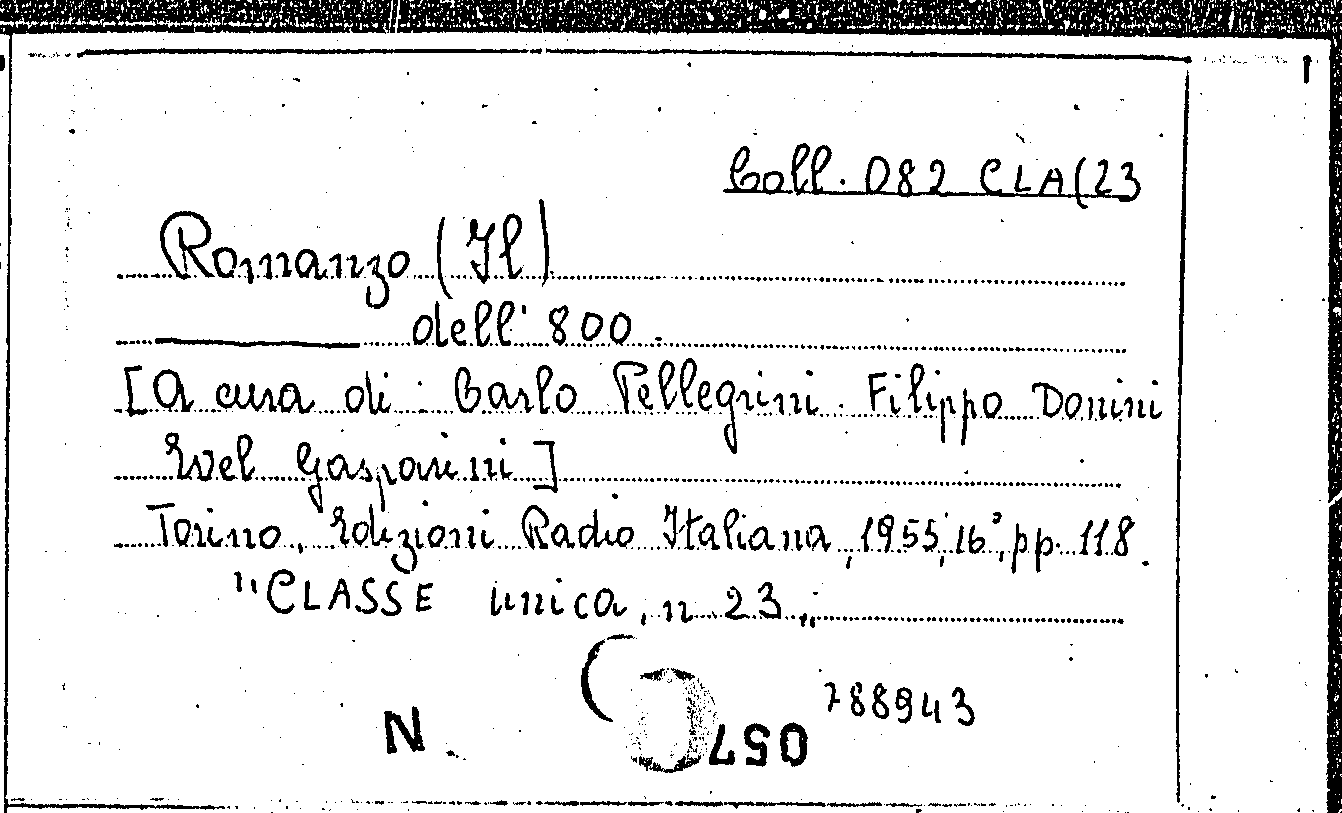 Coll. 082 CLA(23
Romanzo (Il)
dell' 800.
[A cura di: Carlo Pellegrini. Filippo Donini
Evel Gasparini]
Torino, Edizioni Radio Italiana, 1955, 16°, pp. 118.
"CLASSE unica, n 23„
788943
N. 057